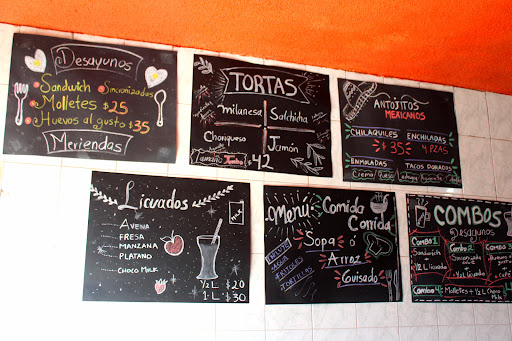 Desayunos
Sandwich Sincronizadas
Molletes $25
Huevos al gusto $35
Meriendas
TORTAS
milanesa Salchicha
Choriqueso Jamón
Tamaño $42
ANTOJITOS
MEXICANOS
CHILAQUILES ENCHILADAS
$35 4 PZAS
ENMOLADAS TACOS DORADOS
Crema Queso
Licuados
AVENA
FRESA
MANZANA
PLATANO
CHOCO MILK
1/2 L $20
1 L $30
Menú Comida
Corrida
INCLUYE Sopa ó
AGUA Arroz
FRIJOLES Guisado
TORTILLAS
COMBOS
Desayunos
COMBO 1 Combo 2 Combo 3
Sandwich Sincronizada
+ 1/2 L licuado
Combo 4 Molletes + 1/2 L Choco
Milk